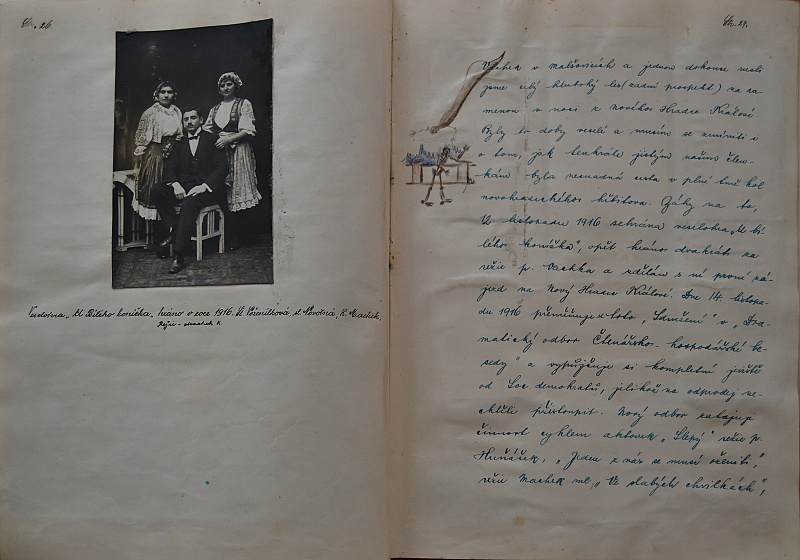 Str. 26.
Veselohra „U Bílého koníčka„ hráno v roce 1916. Sl. Všeničková, sl. Novotná, K. Machek.
Režie - Machek K.
Str. 27.
Machek v Malšovicích a jednou dokonce nesli
jsme celý hluboký les (zadní prospekt) na ra-
menou v noci z Nového Hradce Králové.
Byly to doby veselé a musím se zmíniti i
o tom, jak tenkráte jistým našim člen-
kám byla nesnadná cesta v plné tmě kol
novohradeckého hřbitova. Záhy na to,
12. listopadu 1916 sehrána veselohra „U bí-
lého koníčka", opět hráno dvakrát za
režie p. Machka a zdělán s ní první zá-
jezd na Nový Hradec Králové. Dne 14. listopa-
du 1916 přeměňuje se toto „Sdružení" v „Dra-
matický odbor Čtenářsko-hospodářské be-
sedy" a vypůjčuje si kompletní jeviště
od Soc demokratů, jelikož na odprodej ne-
chtěli přistoupit. Nový odbor zahajuje
činnost cyklem aktovek „Slepý" režie p.
Huňáček, „Jeden z nás se musí oženiti",
režie Machek ml, „Ve slabých chvilkách",